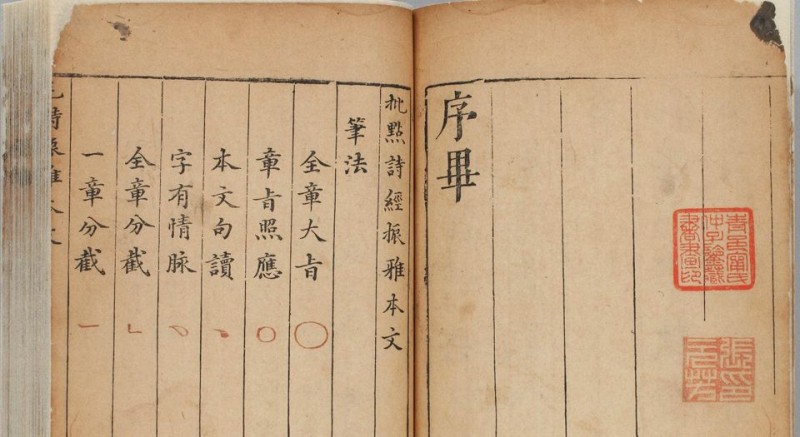 序畢
批點詩經振雅本文
筆法
全章大旨
章旨照應
本文句讀
字有情脉
全章分截
一章分截